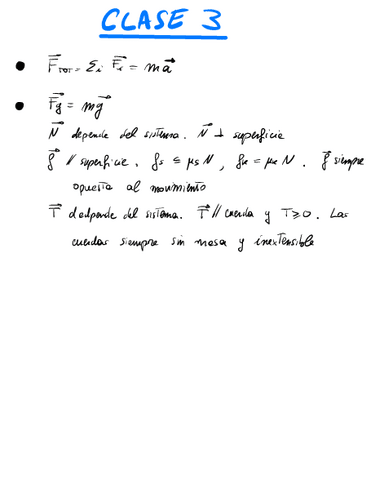 CLASE 3
• F⃗_TOT = Σᵢ F⃗ᵢ = ma⃗
• F⃗g = mg⃗
N⃗ depende del sistema. N⃗ ⊥ superficie
f⃗ // superficie. fs ≤ μs N, fk = μk N. f⃗ siempre
opuesta al movimiento
T⃗ dedpende del sistema. T⃗ // cuerda y T ⩾ 0. Las
cuerdas siempre sin masa y inextensible